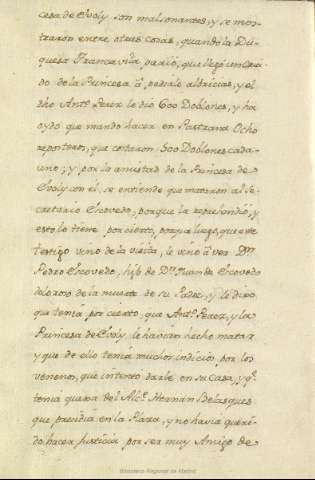 cesa de Evoly son malsonantes, y se mos-
traron entre otras cosas, quando la Du-
quesa Francavila parió, que llegó un cria-
do de la Princesa à pedirle albricias, y el
dho Antº Perez le dio 600 Doblones, y ha
oydo que mando hacer en Pastrana Ocho
reposteros, que costaron 500 Doblones cada
uno; y por la amistad de la Princesa de
Evoly con el, se entiende que mataron al Se-
cretario Escovedo, porque la reprehendió, y
esto lo tiene por cierto, porq a luego, que este
testigo vino de la visita, le vino à ver Dn
Pedro Escovedo, hijo de Dn Juan de Escovedo
deloroso de la muerte de su Padre, y le dixo
que tenia por cierto, que Antº Perez, y la
Princesa de Evoly, le havian hecho matar
y que de ello tenia muchos indicios, por los
venenos, que intentó darle en su casa, y qe
tenia quexa del Alce Hernán Velasquez
que presidia en la Plaza, y no havia queri-
do hacer Justicia por ser muy Amigo de
Biblioteca Regional de Madrid